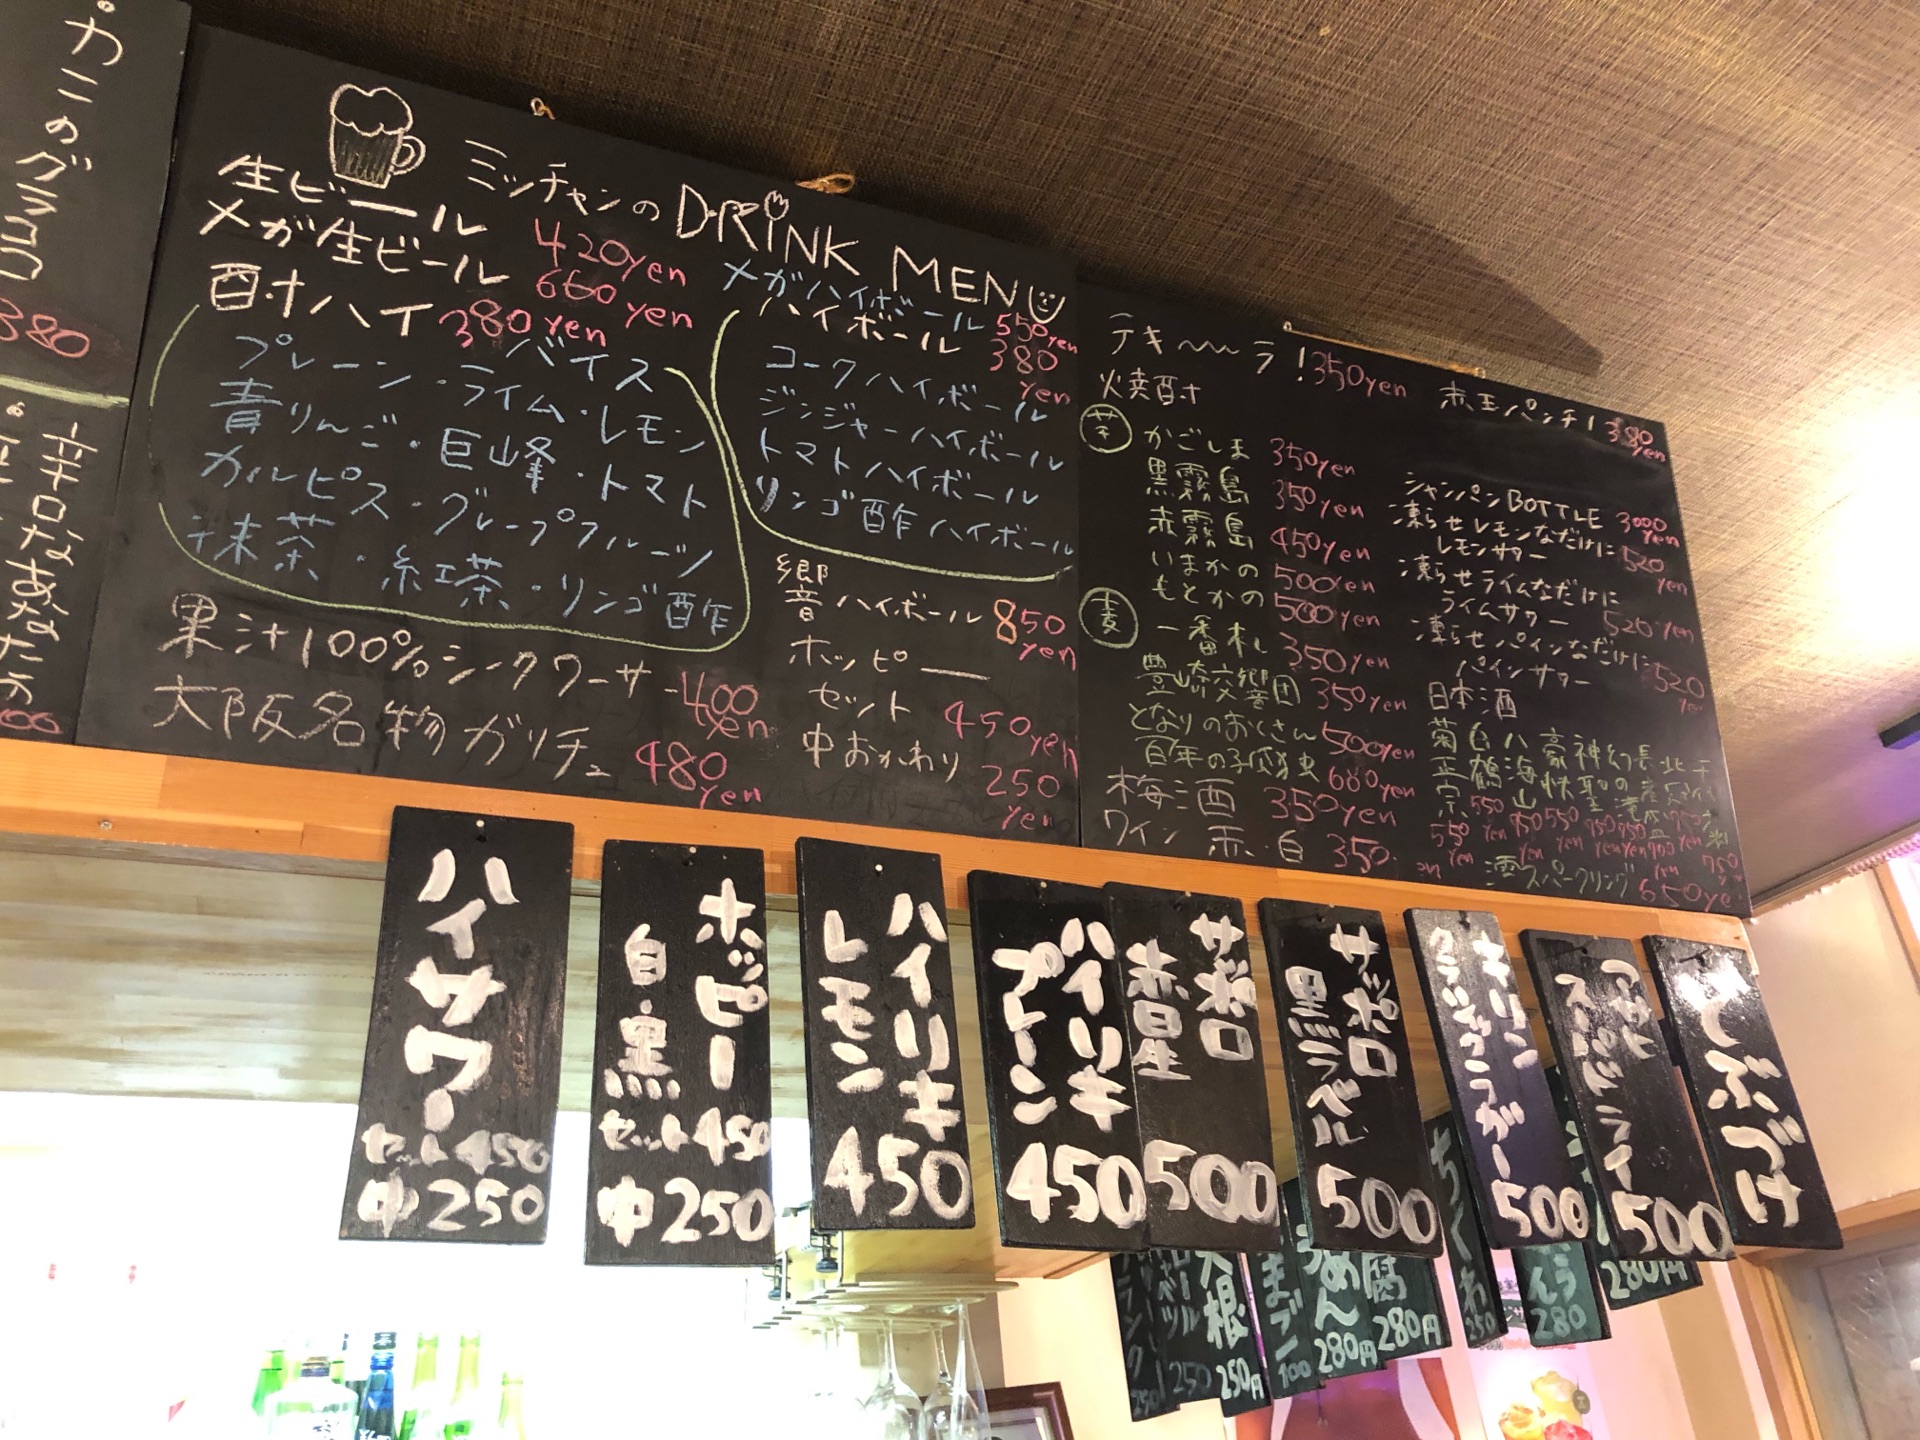 カニのグラココ
380
辛口なあなた方
ミッチャンのDRiNK MENU
生ビール 420yen
メガ生ビール 660yen
酎ハイ 380yen
バイス
プレーン・ライム・レモン
青りんご・巨峰・トマト
カルピス・グレープフルーツ
抹茶・紅茶・リンゴ酢
果汁100%シークワーサー400yen
大阪名物ガリチュー 480yen
メガハイボール 550yen
ハイボール 380yen
コークハイボール
ジンジャーハイボール
トマトハイボール
リンゴ酢ハイボール
響ハイボール 850yen
ホッピー
セット 450yen
中おかわり 250yen
テキ〜ラ!350yen
赤玉パンチ!380yen
焼酎
芋
かごしま 350yen
黒霧島 350yen
赤霧島 450yen
いまかの 500yen
もとかの 500yen
麦
一番札 350yen
豊崎交響団 350yen
となりのおくさん 500yen
百年の孤独 680yen
梅酒 350yen
ワイン 赤・白 350
シャンパンBOTTLE 3000yen
凍らせレモンなだけに
レモンサワー 520yen
凍らせライムなだけに
ライムサワー 520yen
凍らせパインなだけに
パインサワー 520yen
日本酒
菊正宗 550yen
白鶴 550yen
八海山 750yen
澪スパークリング 650ye
ハイサワー
セット450
中250
ホッピー
白・黒
セット450
中250
ハイリキ
レモン
450
ハイリキ
プレーン
450
サッポロ
赤星
500
サッポロ
黒ラベル
500
キリン
クラシックラガー
500
アサヒ
スーパードライ
500
しぶづけ
250
大根
250円
100
280円
腐
280円
ちくわ
250
280
280円